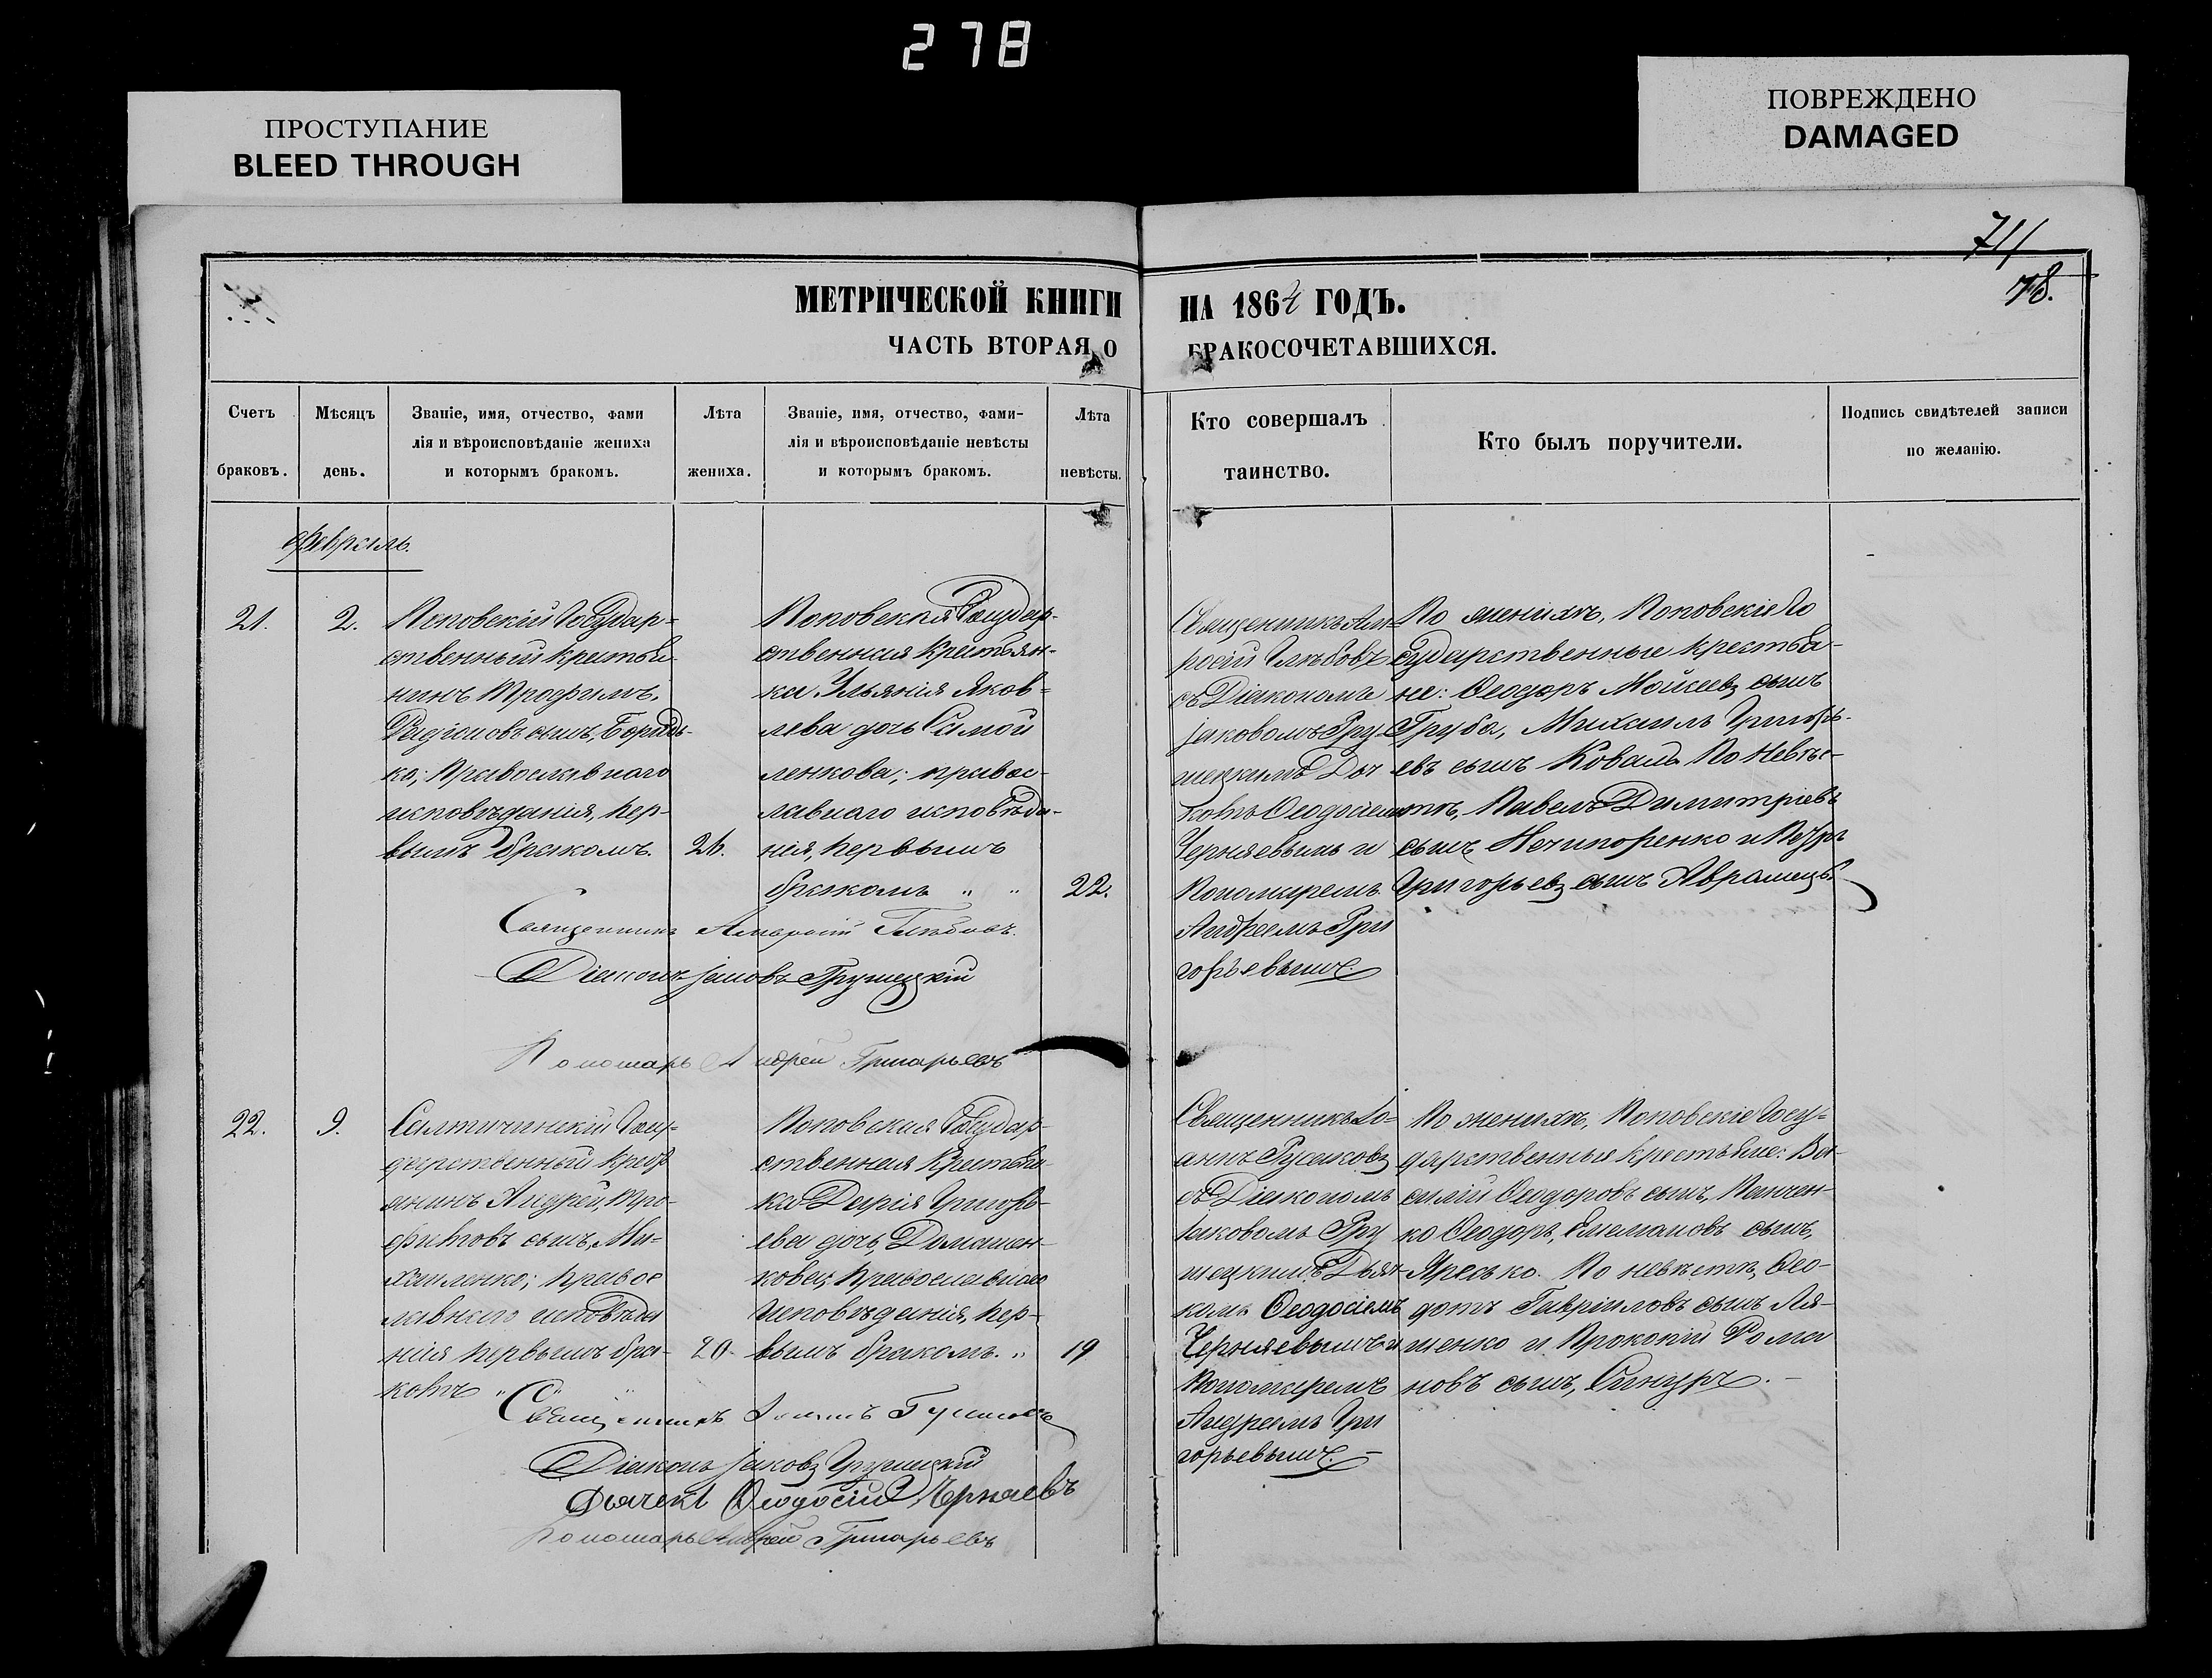 278
ПРОСТУПАНИЕ
BLEED THROUGH
ПОВРЕЖДЕНО
DAMAGED
71
78.
МЕТРИЧЕСКОЙ КНИГИ НА 1864 ГОДЪ.
ЧАСТЬ ВТОРАЯ, О БРАКОСОЧЕТАВШИХСЯ.
Счетъ браковъ.
Мѣсяцъ день.
Званіе, имя, отчество, фами
лія и вѣроисповѣданіе жениха
и которымъ бракомъ.
Лѣта жениха.
Званіе, имя, отчество, фами-
лія и вѣроисповѣданіе невѣсты
и которымъ бракомъ.
Лѣта невѣсты.
Кто совершалъ
таинство.
Кто былъ поручители.
Подпись свидѣтелей записи
по желанію.
Февраль.
21.
2.
Поповскій Государ=
ственный крестья
нинъ Трофимъ,
Радіоновъ сынъ,
ко; Православнаго
исповѣданія, пер-
вымъ бракомъ.
26.
Поповская Государ-
ственная Крестьян-
ка Ульянія Яков=
лева дочь Самой
ленкова; правос-
лавнаго исповѣда-
нія, первымъ
бракомъ " "
22.
Священникъ Ам-
росій Глѣбовъ
съ Діакономъ
Іаковомъ Гру-
шецкимъ Дья
комъ Феодосіемъ
Черняевымъ и
Пономаремъ
Андреемъ Гри
горьевымъ.
По женихѣ, Поповскіе Го
сударственные крестья-
не: Феодоръ Мойсеевъ сынъ
Груба, Михаилъ Григорь-
евъ сынъ Коваль По Невѣс-
тѣ, Павелъ Димитріевъ
сынъ Нечипоренко и Петръ
Григорьевъ сынъ
Священникъ Амвросій Глѣбовъ.
Діаконъ Іаковъ Грушецкій
Пономарь Андрей Григорьевъ
22.
9.
Салтичинскій Госу-
дарственный Крест
янинъ Андрей, Про-
финовъ сынъ, Ми=
хайленко; правос
лавнаго исповѣда
нія первымъ бра-
комъ " "
20.
Поповская Государ-
ственная Крестьян-
ка Дарія Григорь-
ева дочь, Домашен-
кова; Православнаго
исповѣданія, пер-
вымъ бракомъ. "
19
Священникъ Іо-
аннъ Гусаковъ
съ Діакономъ
Іаковомъ Гру
шецкимъ Дьяч
комъ Феодосіемъ
Черняевымъ и
Пономаремъ
Андреемъ Гри
горьевымъ. –
По женихѣ, Поповскіе Госу=
дарственные крестьяне: Ва-
силій Феодоровъ сынъ, Панчен-
ко Феодоръ, Емельяновъ сынъ,
Яресько. По невѣстѣ, Фео-
дотъ Гавріиловъ сынъ Ля-
шенко и Прокопій Рома
новъ сынъ,
Священникъ Іоаннъ Гусаковъ
Діаконъ Іаковъ Грушецкій
Дьячекъ Феодосій Черняевъ
Пономарь Андрей Григорьевъ